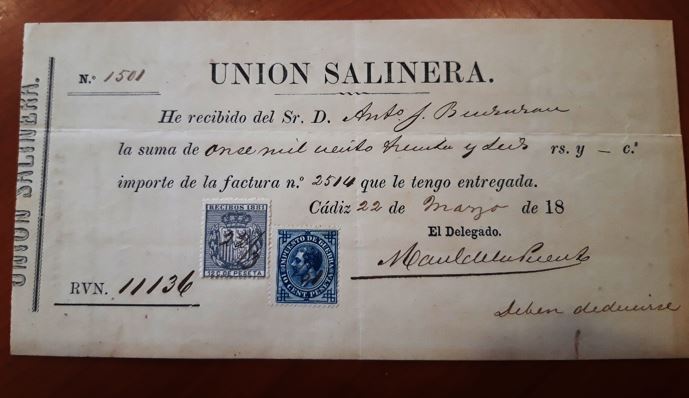 UNION SALINERA.
N.º 1501
UNION SALINERA.
He recibido del Sr. D. Antº J.
la suma de onse mil ciento treinta y seis rs. y — c.s
importe de la factura n.º 2514 que le tengo entregada.
Cádiz 22 de Marzo de 18
El Delegado.
RECIBOS 1881
12 C. DE PESETA
IMPUESTO DE GUERRA
10 CENT. PESETA
RVN. 11136
Deben deducirse